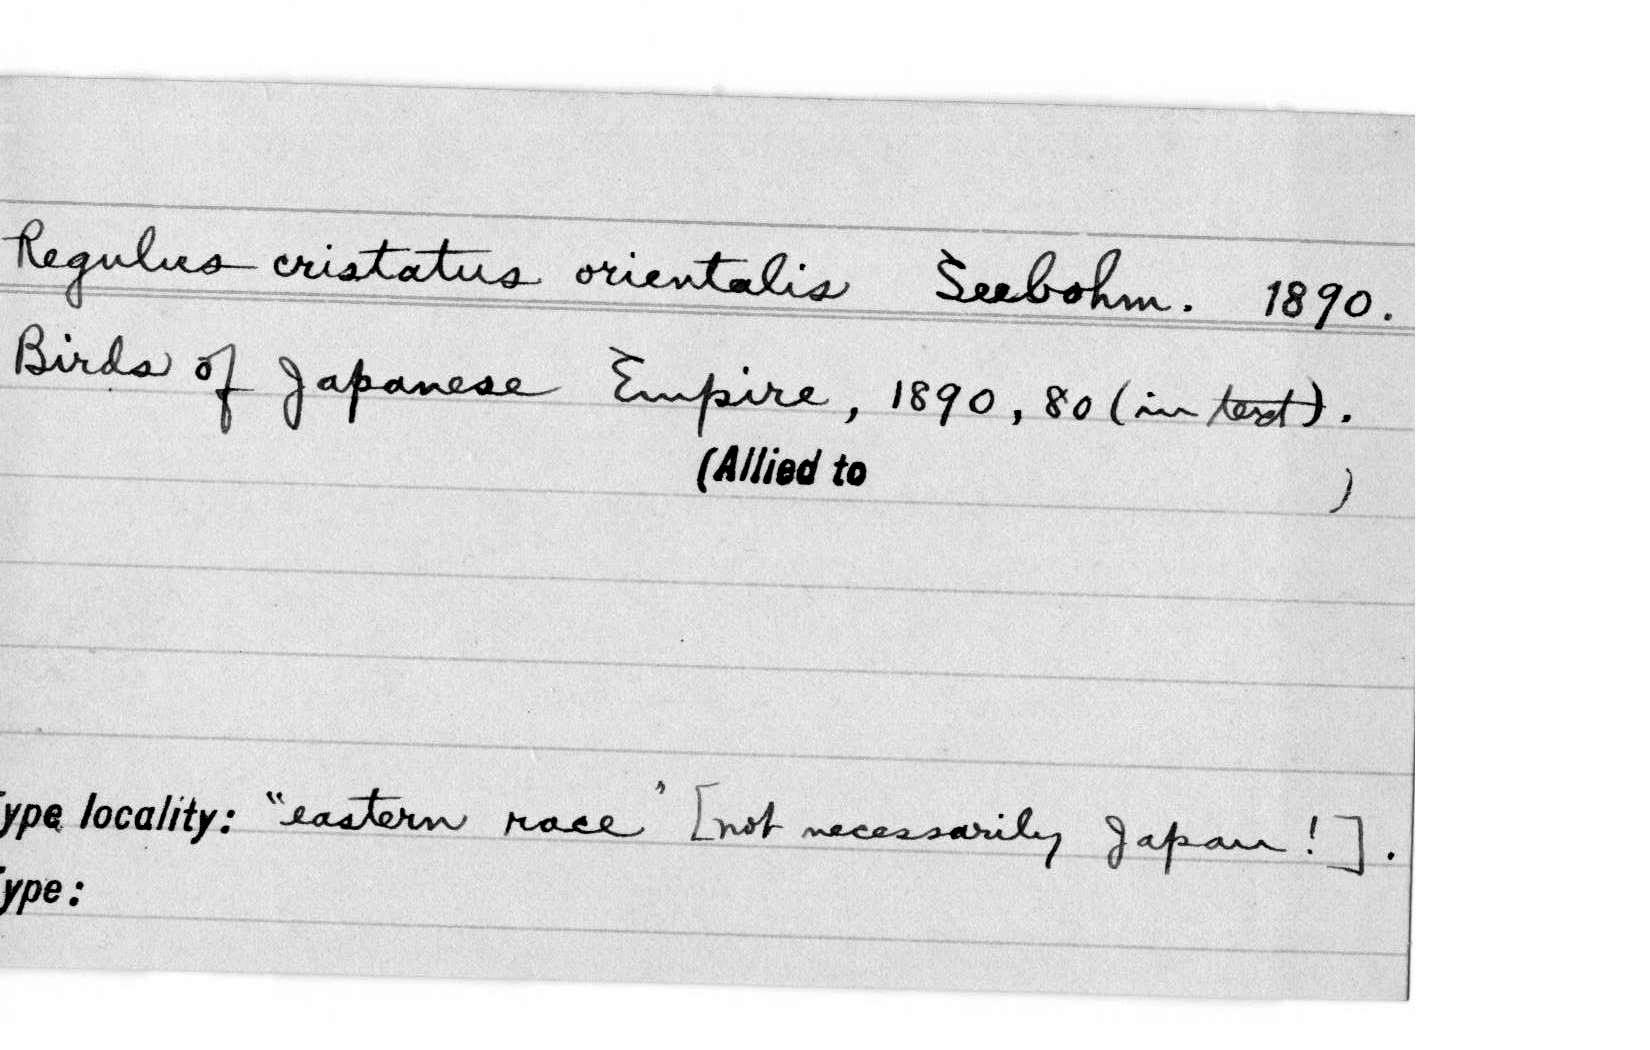 Regulus cristatus orientalis Seebohm. 1890.
Birds of Japanese Empire, 1890, 80 (in text).
(Allied to )
Type locality: "eastern race' [not necessarily Japan!].
Type: